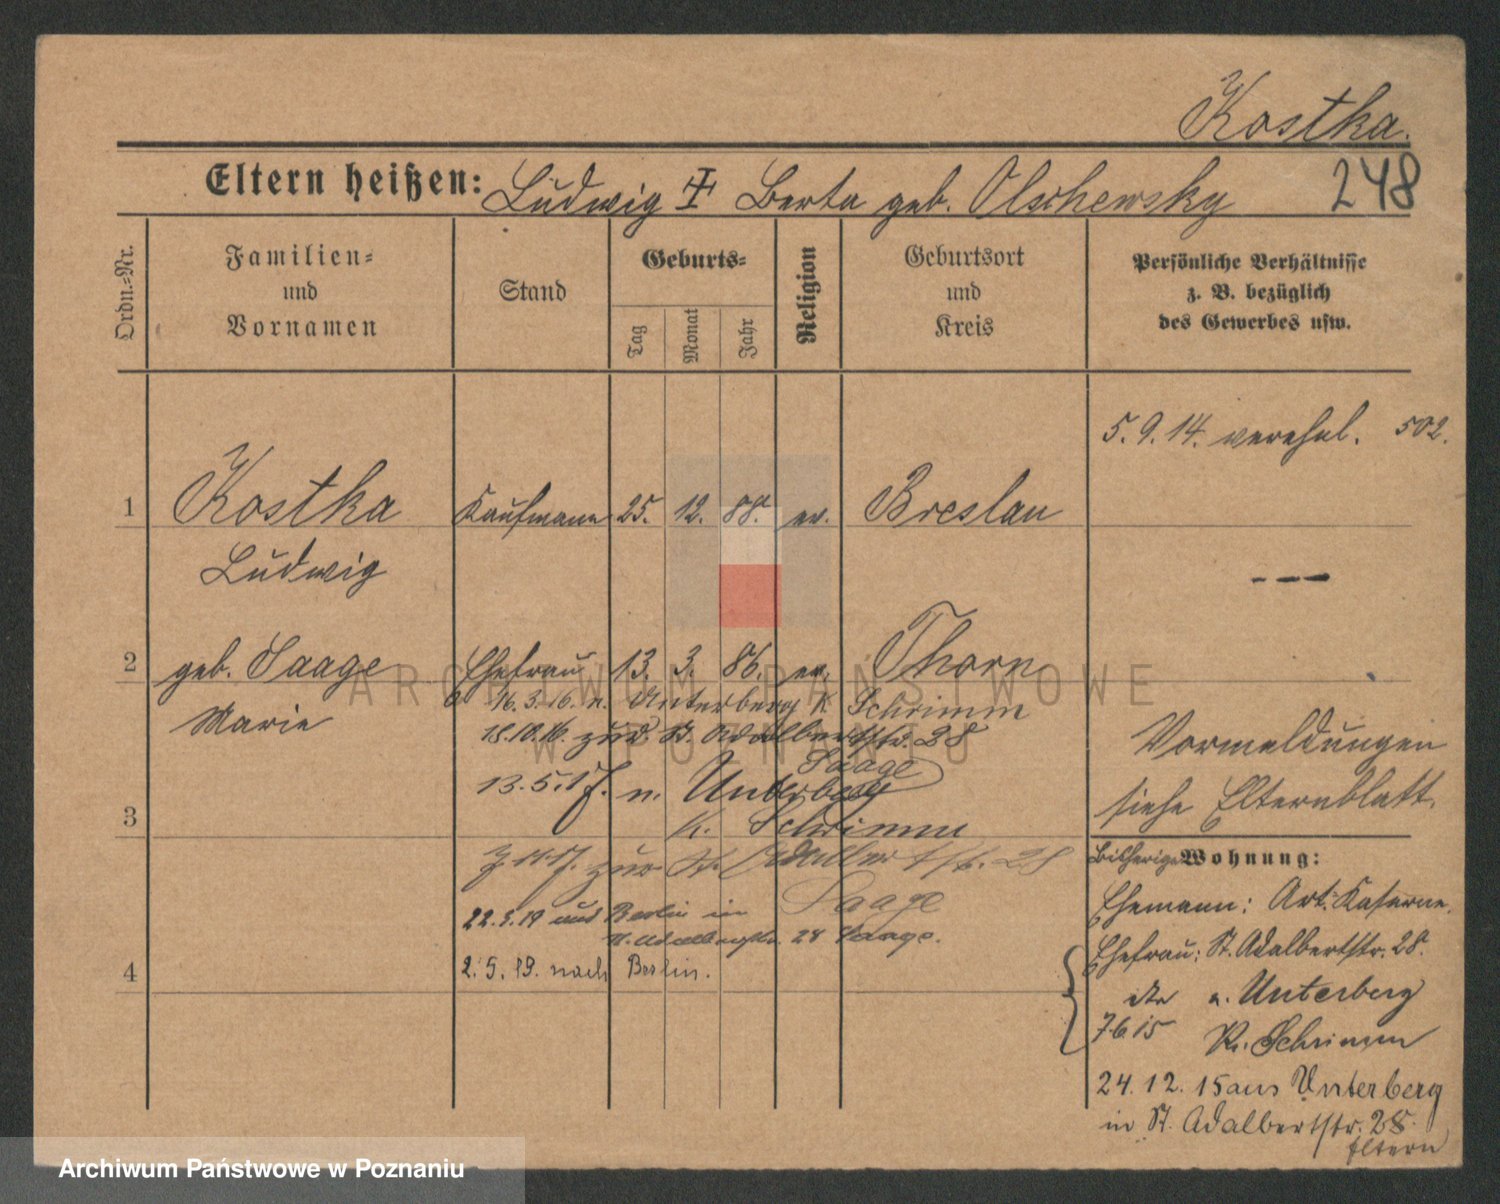 Kostka.
Eltern heißen: Ludwig Berta geb. Olschewsky 248
Ordn.-Nr.
Familien-
und
Vornamen
Stand
Geburts-
Tag
Monat
Jahr
Religion
Geburtsort
und
Kreis
Persönliche Verhältnisse
z. B. bezüglich
des Gewerbes usw.
5. 9. 14. verehel. 502.
1 Kostka Kaufmann 25. 12. 88. ev. Breslau
Ludwig
---
2 geb. Saage Ehefrau 13. 3. 86. ev. Thorn
Marie
16. 3. 16. n. Unterberg K Schrimm
18.10.16. zur St. Adalbertstr. 28
Saage
13. 5. 17. n. Unterberg
K. Schrimm
3
zur St. Adalbertstr. 28
Saage
22. 3. 19 aus Berlin in
St. Adalbertstr. 28 Saage.
4
2. 5. 19. nach Berlin.
Vormeldungen
siehe Elternblatt.
Bisherige Wohnung:
Ehemann: Art. Kaserne.
Ehefrau: St. Adalbertstr. 28.
n. Unterberg
7.6.15 Kr. Schrimm
24. 12. 15 aus Unterberg
in St. Adalbertstr. 28
Eltern
ARCHIWUM PAŃSTWOWE
W POZNANIU
Archiwum Państwowe w Poznaniu